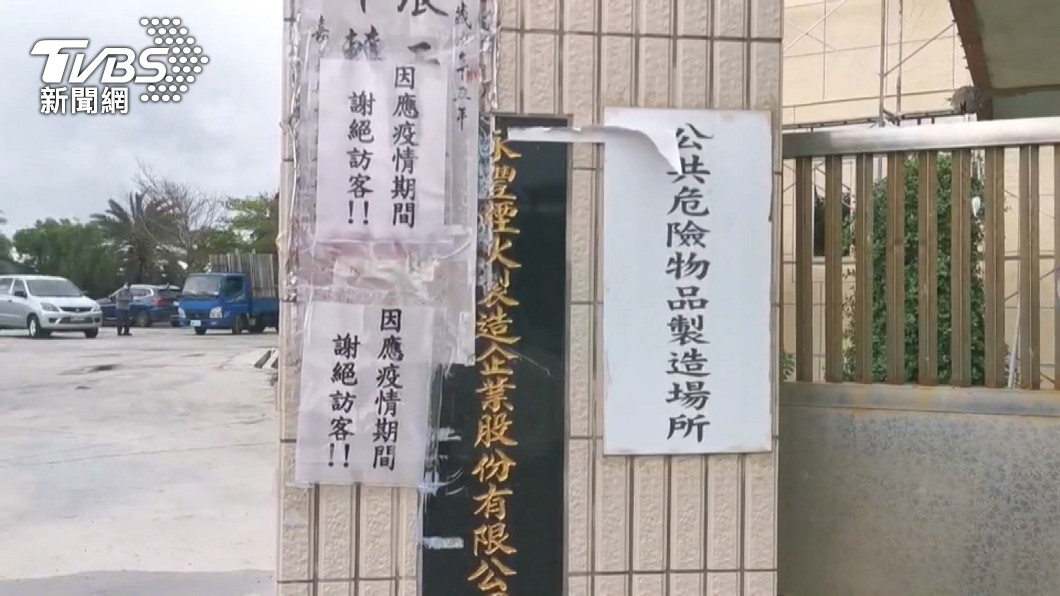 TVBS
新聞網
因應疫情期間
謝絕訪客!!
因應疫情期間
謝絕訪客!!
永豐煙火製造企業股份有限公
公共危險物品製造場所